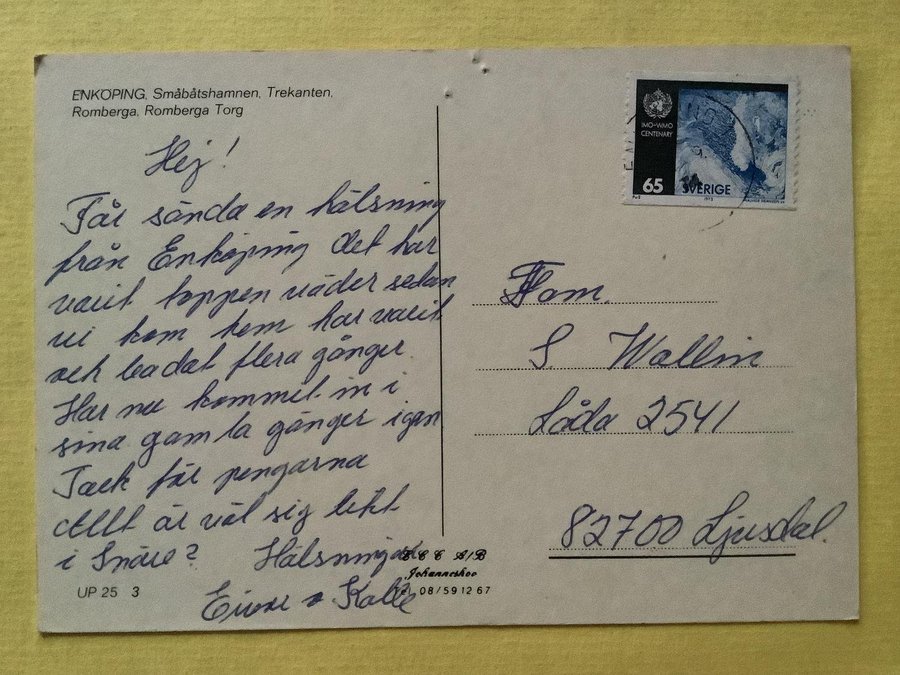 ENKÖPING, Småbåtshamnen, Trekanten,
Romberga, Romberga Torg
Hej!
Får sända en hälsning
från Enköping det har
varit toppen väder sedan
vi kom hem har varit
och badat flera gånger.
Har nu kommit in i
sina gamla gänger igen
Tack för pengarna
Allt är väl sig likt
i Snäre? Hälsningar
Kalle
UP 25 3
A/B
Johanneshov
08/59 12 67
IMO-WMO
CENTENARY
65 SVERIGE
1973
Fam.
S. Wallin
Låda 2541
82700 Ljusdal.